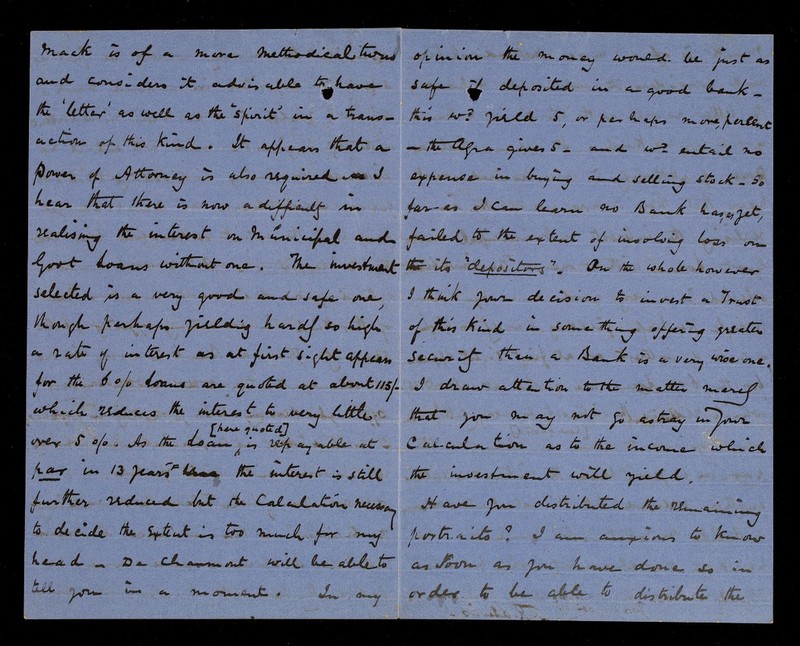 Mack is of a more methodical turn
and considers it advisable to have
the 'letter' as well as the "spirit" in a trans-
action of this kind. It appears that a
Power of Attorney is also required as I
hear that there is now a difficulty in
realising the interest on Municipal and
Govt Loans without one. The investment
selected is a very good and safe one,
though perhaps yielding hardly so high
a rate of interest as at first sight appears
for the 6 o/o Loans are quoted at about 115/-
which reduces the interest to very little
[here quoted]
over 5 o/o. As the Loan, is repayable at
par in 13 years the interest is still
further reduced but the calculation necessary
to decide the extent is too much for my
head - De Chaumont will be able to
tell you in a moment. In my
opinion the money would be just as
safe if deposited in a good bank -
this wd yield 5, or perhaps more, percent
- the Agra gives 5 - and wd entail no
expense in buying and selling stock - So
far as I can learn no Bank has, as yet,
failed to the extent of involving loss on
the its "depositors". On the whole however
I think your decision to invest a Trust
of this kind in something offering greater
security than a Bank is a very wise one.
I draw attention to the matter merely
that you may not go astray in your
calculation as to the income which
the investment will yield.
Have you distributed the remaining
portraits? I am anxious to know
as soon as you have done so in
order to be able to distribute the